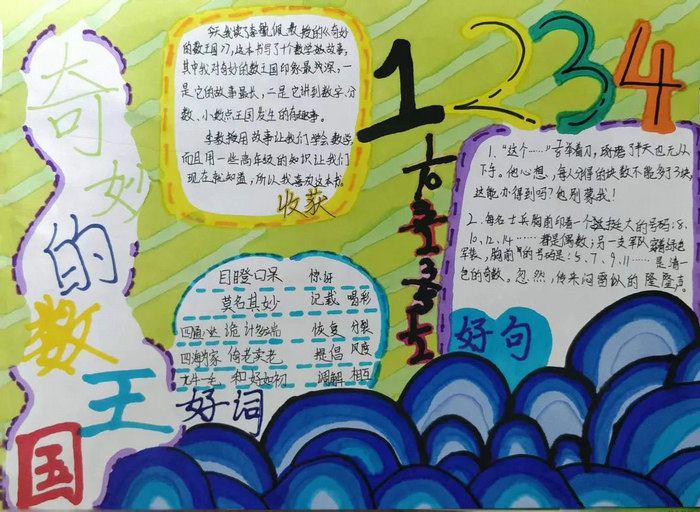 奇妙的数王国
今天我读了李毓佩教授的《奇妙
的数王国》,这本书写了十个数学故事,
其中我对奇妙的数王国印象最深,一
是它的故事最长,二是它讲到数字、分
数、小数点王国发生的有趣事。
李教授用故事让我们学会数学
而且用一些高年级的知识让我们
现在就知道,所以我喜欢这本书。
收获
1 2 3 4
目瞪口呆 你好
莫名其妙 记载 喝彩
诡计多端 恢复 分裂
四海为家 倚老卖老 提倡 风度
和好如初 调解 相互
好词
1、“这个……”舌举着刀,琢磨了半天也无从
下手。他心想,每人分得的块数不能多于3块,
这能办得到吗?他别蒙我!
2、每名士兵胸前印着一个挺大的号码:8、
10、12、14……都是偶数;另一支军队穿着绿色
军装,胸前的号码是:5、7、9、11……是清一
色的奇数。忽然,传来闷雷似的隆隆声。
好句